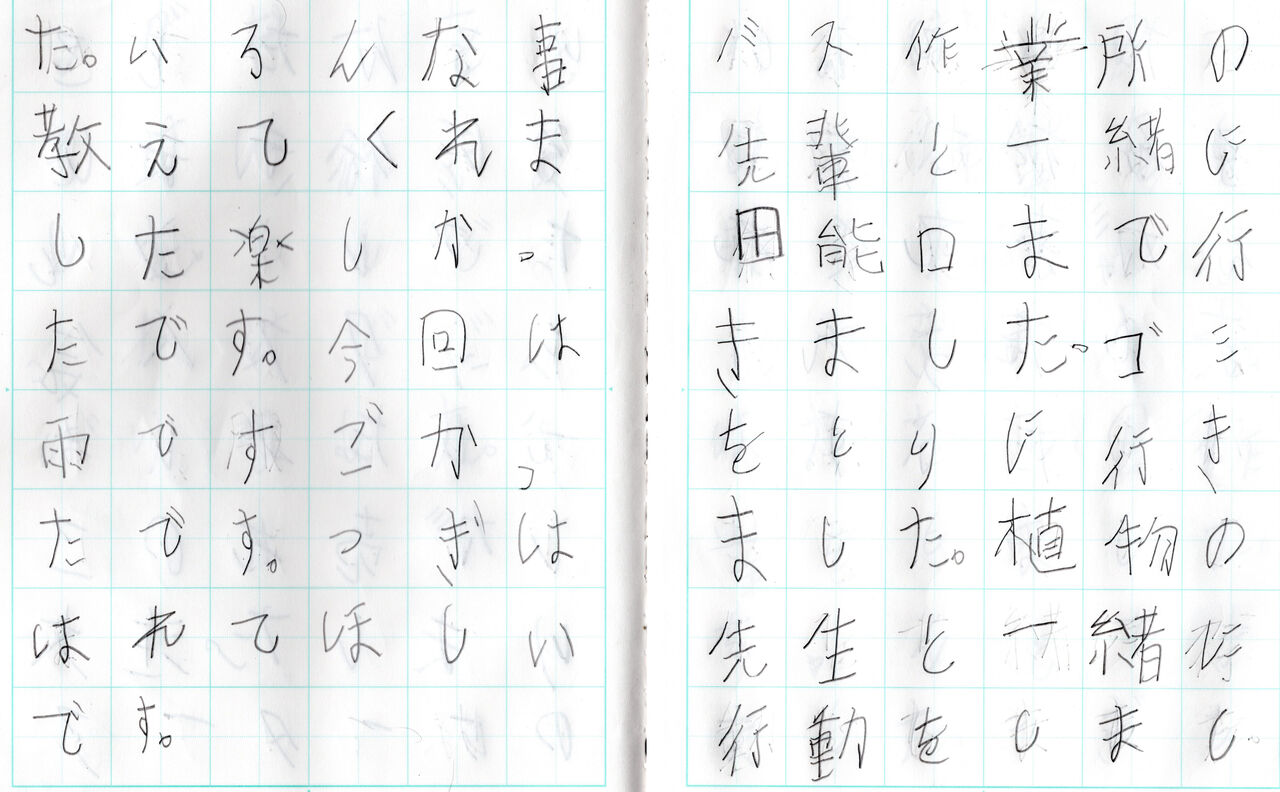 バス作業所の
先輩と一緒に
田能口まで行
きました。ゴミ
をとりに行き
ました。植物の
先生と一緒に
行動をしまし
た。いろんな事
教えてくれま
した楽しかっ
たです。今回は
雨ですごかっ
たです。つぎは
はれてほしい
です。